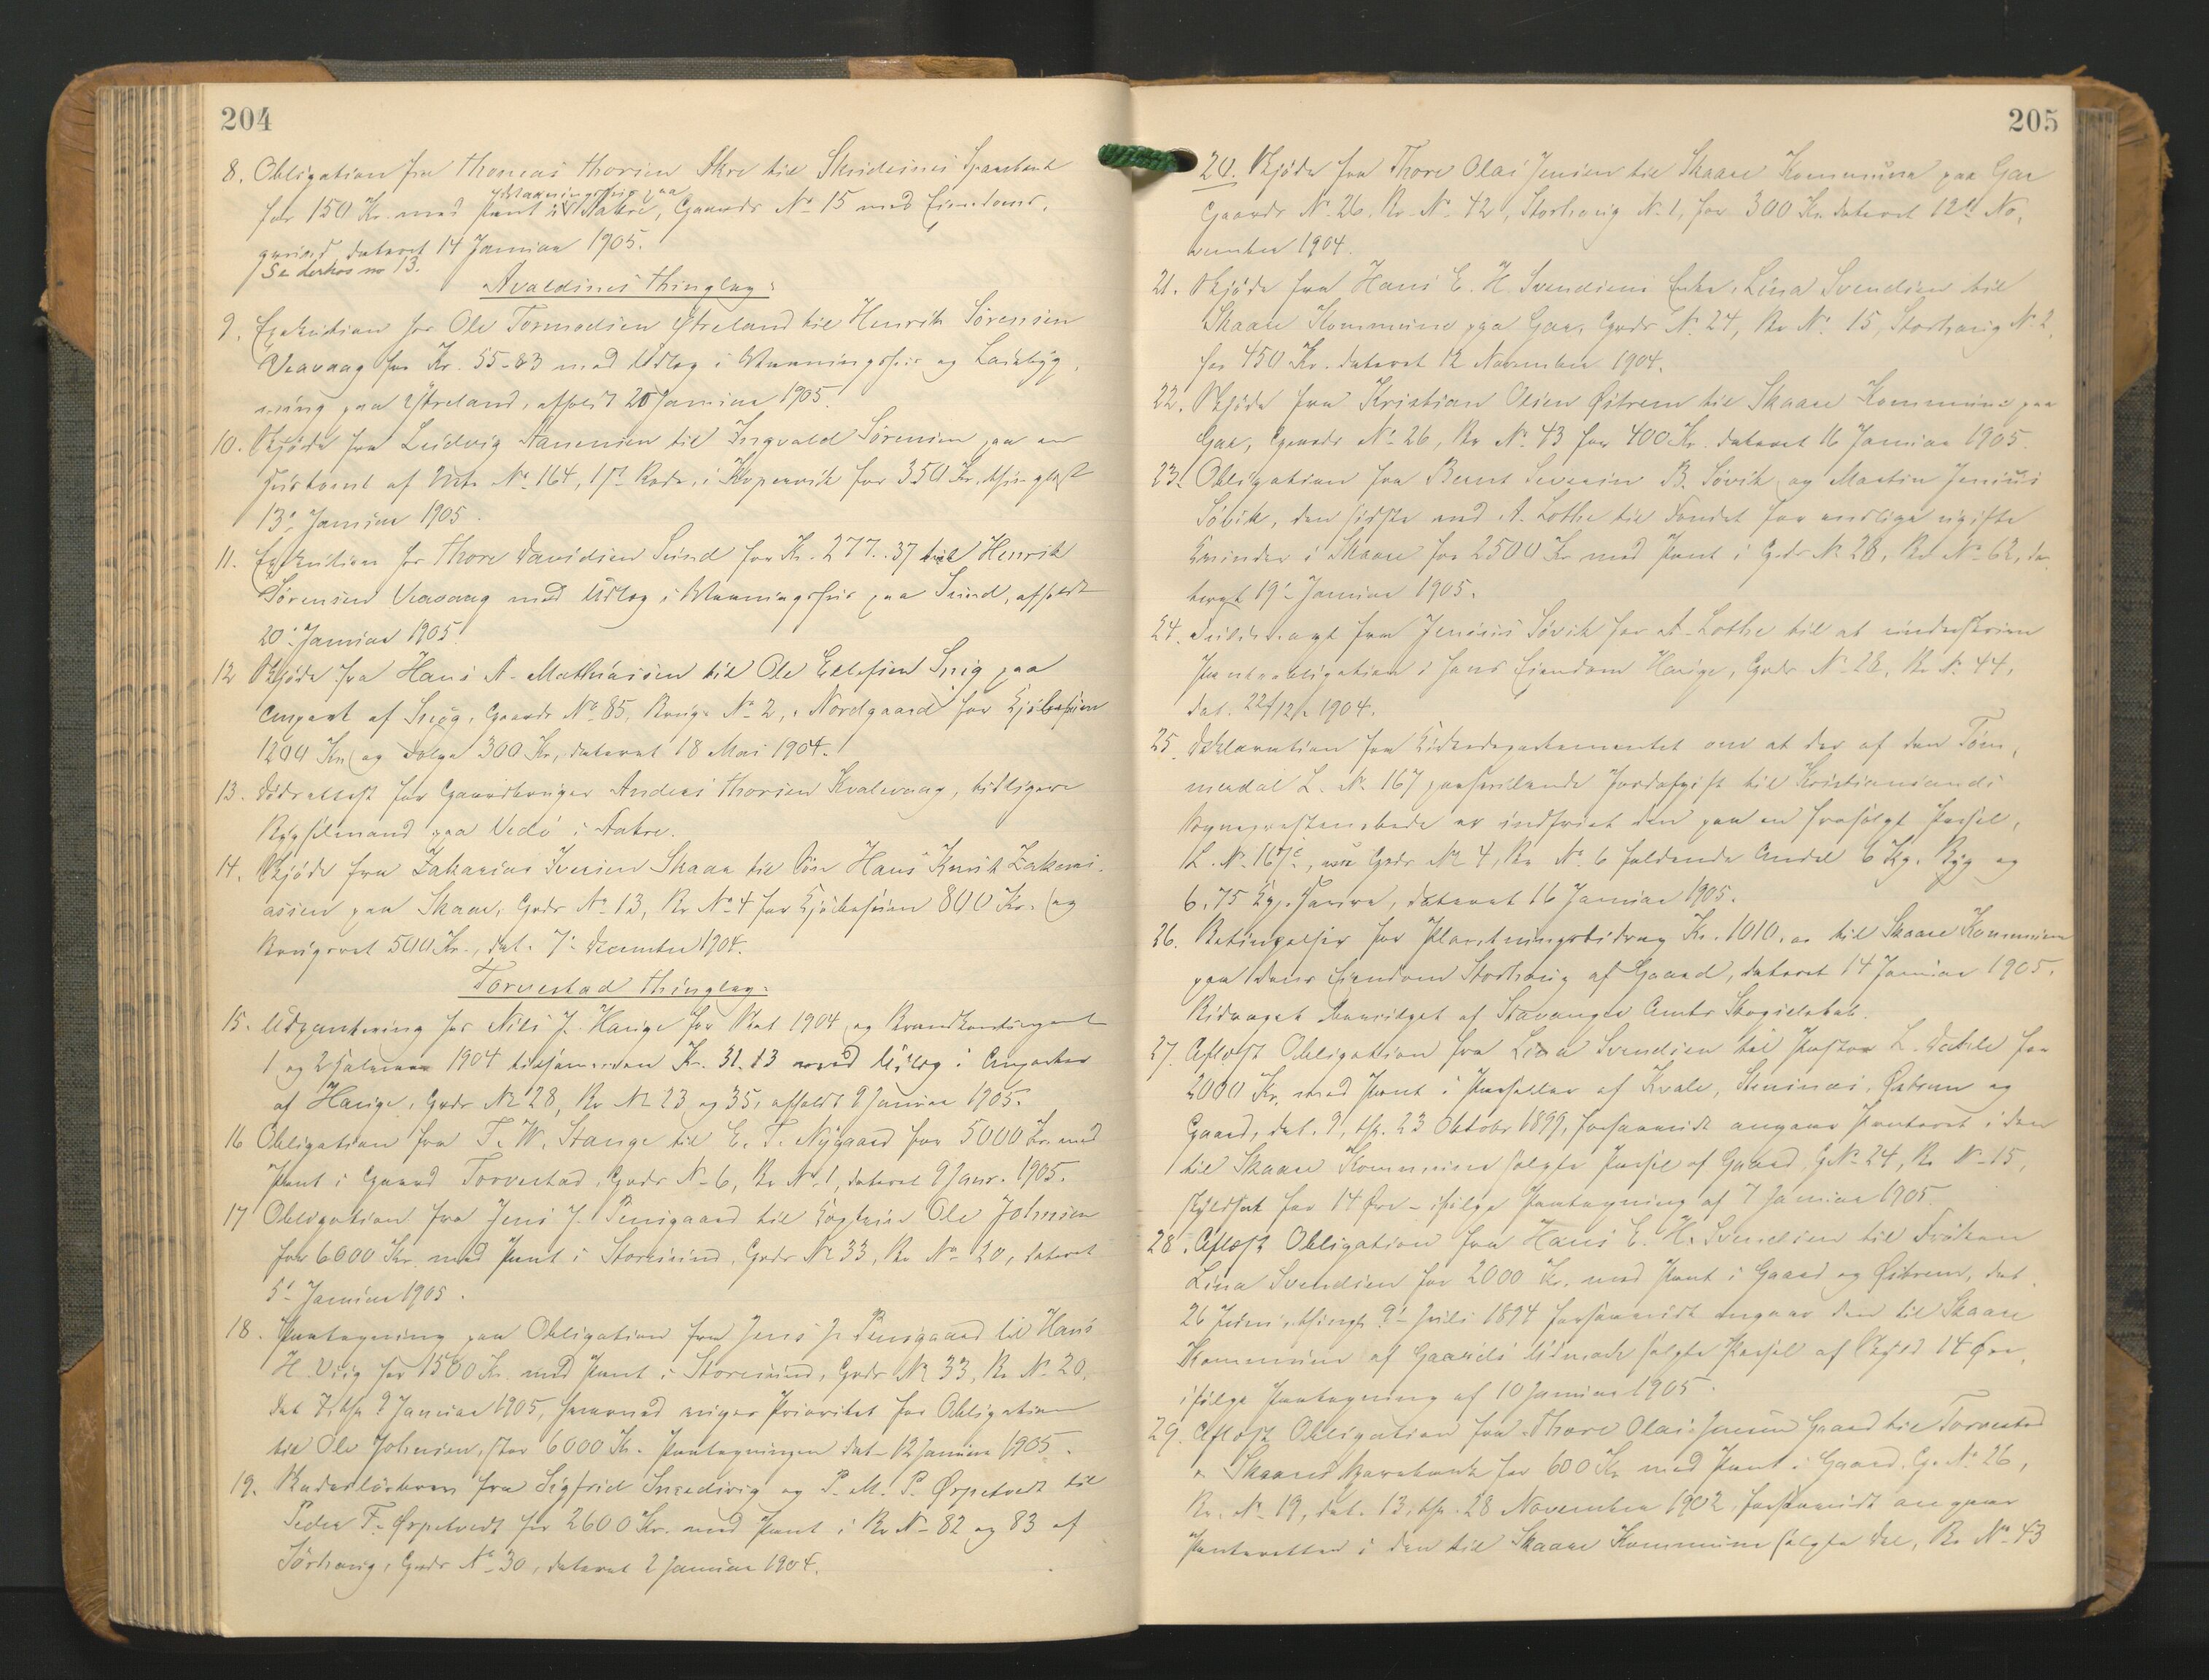 204
8. Obligation fra Thomas Thorsen Akre til Skudesnes Sparebank
Vaaningshus paa
for 150 Kr. med Pant i Aakre, Gaards No 15 med Eiendoms-
dateret 14 Januar 1905.
Se derhos no 13.
Avaldsnes Thinglag:
9. Exekution for Ole Tormodsen Ytreland til Henrik Sörensen
Veavaag for Kr. 55-83 med Udlæg i Vaaningshus og Ladebyg-
ning paa Ytreland, afholdt 20 Januar 1905.
10. Skjöde fra Ludvig Aanensen til Ingvald Sörensen paa en
af Mtr. No 164, 1ste Rode, i Kopervik for 350 Kr. thinglæst
13 Januar 1905.
11. Exekution for Thore Davidsen Sund for Kr. 277.37 til Henrik
Sörensen Veavaag med Udlæg i Vaaningshus paa Sund, afholdt
20 Januar 1905.
12 Skjöde fra Hans A. Mathiassen til Ole Ellefsen Snig paa
Anpart af Snig, Gaards No 85, Brugs No 2, Nordgaard for Kjöbesum
1200 Kr. og Fölge 300 Kr, dateret 18 Mai 1904.
13. Dödsattest for Gaardbruger Anders Thorsen Kvalevaag, tidligere
Bygselmand paa Vedö i Aakre.
14. Skjöde fra Zakarias Iversen Skaar til Sön Hans Knut Zakari-
assen paa Skaar, Gards No 13, Br No 4 for Kjöbesum 800 Kr. og
Brugsret 500 Kr., dat. 7 December 1904.
Torvestad Thinglag:
15. Udpantning for Nils J. Hauge for Skat 1904 og Brandkontingent
1 og 2 Halvaar 1904 tilsammen Kr. 31.13 med Udlæg i Anparter
af Hauge, Gards No 28, Br No 23 og 35, afholdt 9 Januar 1905.
16 Obligation fra T. W. Stange til E. T. Nygaard for 5000 Kr. med
Pant i Gaard Torvestad, Gards No 6, Br No 1, dateret 9 Januar 1905.
17 Obligation fra Jens J. Pensgaard til Kaptein Ole Johnsen
for 6000 Kr. med Pant i Storesund, Gards No 33, Br No 20, dateret
5 Januar 1905.
18. Paategning paa Obligation fra Jens J. Pensgaard til Hans
H. Viig for 1500 Kr. med Pant i Storesund, Gards No 33, Br No 20,
dat 7, thl 9 Januar 1905, hvorved viges Prioritet for Obligation
til Ole Johnsen, stor 6000 Kr. Paategningen dat. 12 Januar 1905.
19. fra Sigfrid og P. M. P. Ørpetvedt til
Peder T. Ørpetvedt for 2600 Kr. med Pant i Br No 82 og 83 af
Sörhaug, Gards No 30, dateret 2 Januar 1904.
205
20. Skjöde fra Thore Olai Jensen til Skaare Kommune paa Gar
Gaards No 26, Br No 42, Storhaug No 1, for 300 Kr. dateret 12 No-
vember 1904.
21. Skjöde fra Hans E. H. Svendsens Enke, Lina Svendsen til
Skaare Kommune paa Gar, Gards No 24, Br No 15, Storhaug No 2,
for 450 Kr. dateret 12 November 1904.
22. Skjöde fra Kristian Olsen Østrem til Skaare Kommune paa
Gar, Gaards No 26, Br No 43 for 400 Kr. dateret 16 Januar 1905.
23. Obligation fra Bernt Severin B. Sövik og Martin Jenius
Sövik, den sidste ved A. Lothe til Fondet for værdige ugifte
Kvinder i Skaare for 2500 Kr med Pant i Gards No 28, Br No 62, da-
teret 19 Januar 1905.
24. Fuldmagt fra Jenius Sövik for A. Lothe til at underskrive
Panteobligation i hans Eiendom Hauge, Gards No 28, Br No 44,
dat. 22/12 1904.
25. Deklaration fra Kirkedepartementet om at der af den
L. No 167 paahvilende Jordafgift til Kristiansands
er indfriet den paa en frasolgt Parsel,
L. No 167c, nu Gards No 4, Br No 6 faldende Andel 6 Kg. Byg og
6.75 Kg. Havre, dateret 16 Januar 1905.
26. Betingelser for Plantningsbidrag Kr. 1010.00 til Skaare Kommune
paa dens Eiendom Storhaug af Gaard, dateret 14 Januar 1905.
Bidraget bevilget af Stavanger Amts Skogselskab.
27. Aflæst Obligation fra Lina Svendsen til Pastor L. Dahle for
2000 Kr. med Pant i Parseller af Kvale, Steinsnes, Østrem og
Gaard, dat. 9, thl. 23 Oktobr 1899, forsaavidt angaar Panteret i den
til Skaare Kommune solgte Parsel af Gaard G No 24, Br No 15,
skyldsat for 14 Øre - ifölge Paategning af 7 Januar 1905.
28. Aflæst Obligation fra Hans E. H. Svendsen til Fröken
Lina Svendsen for 2000 Kr. med Pant i Gaard og Østrem, dat.
26 Juni, thingl. 9 Juli 1894 forsaavidt angaar den til Skaare
Kommune af Gaards Udmark solgte Parsel af Skyld 14 Øre,
ifölge Paategning af 10 Januar 1905.
29. Aflæst Obligation fra Thore Olai Jensen Gaard til Torvestad
& Skaares Sparebank for 600 Kr med Pant i Gaard, G. No 26,
Br. No 19, dat. 13, thl. 28 November 1902 forsaavidt angaar
Panteretten i den til Skaare Kommune solgte Del, Br No 43